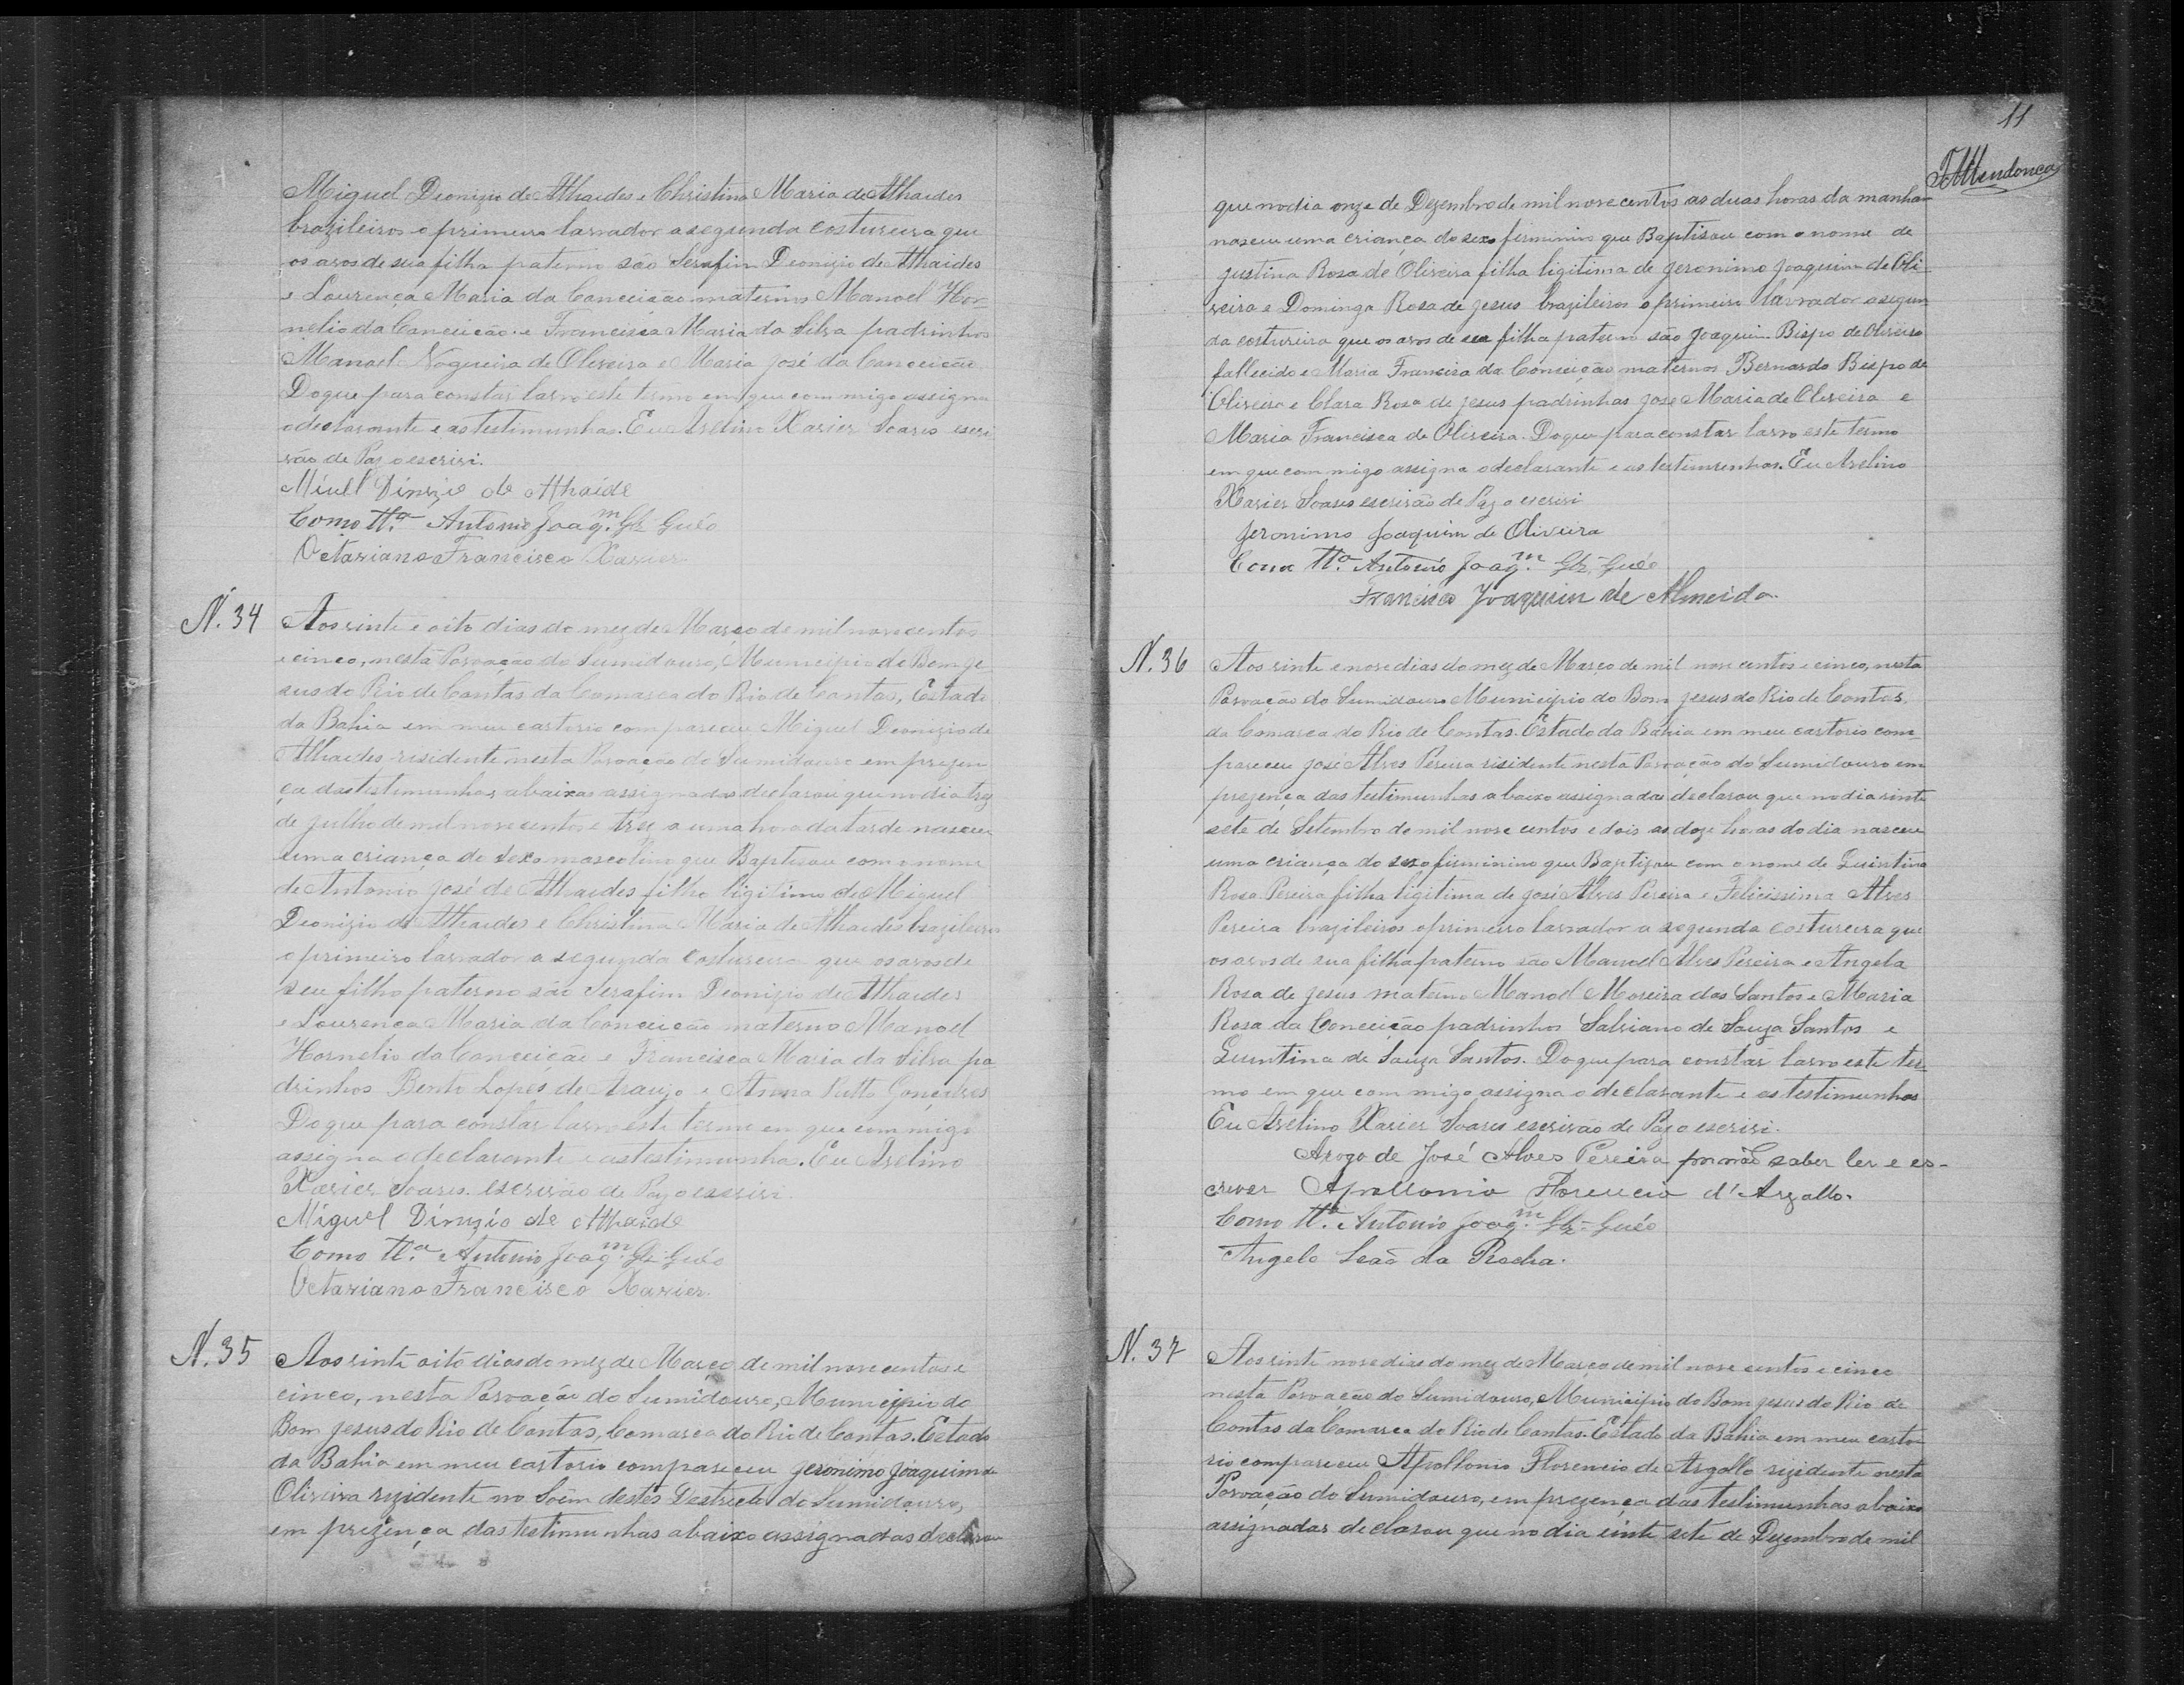 Miguel Deonizio de Athaides e Christina Maria de Athaides
brazileiros o primeiro lavrador a segunda costureira que
os avos de sua filha paterno são Serafim Deonizio de Athaides
e Lourença Maria da Conceição materno Manoel Hor-
nelio da Conceição e Francisca Maria da Silva padrinhos
Manoel Nogueira de Oliveira e Maria José da Conceição
Do que para constar lavro este termo em que com migo assigna
o declarante e as testimunhas. Eu Avelino Xavier Soares escri
vão de Paz o escrivi.
Miull Dinizio de Athaide
Como tt.ª Antonio Joaq.m Glz Guéo
Octaviano Francisco Xavier
N. 34
Aos vinte e oito dias do mez de Março de mil nove centos
e cinco, nesta Povoação do Sumidouro, Municipio do Bom je
sus do Rio de Contas da Comarca do Rio de Contas, Estado
da Bahia em meu cartorio compareceu Miguel Deonizio de
Athaides residente nesta Povoação do Sumidouro em prezen
ça das testimunhas abaixas assignadas declarou que no dia trez
de julho de mil nove centos e trez a uma hora da tarde nasceu
uma criança do sexo mascolino que Baptisou com o nome
de Antonio José de Athaides filho ligitimo de Miguel
Deonizio de Athaides e Christina Maria de Athaides brazileiros
o primeiro lavrador a segunda costureira que os avos de
seu filho paterno são Serafim Deonizio de Athaides
e Lourença Maria da Conceição materno Manoel
Hornelio da Conceição e Francisca Maria da Silva pa
drinhos Bento Lopes de Araujo e Anna Gonçalves
Do que para constar lavro este termo em que com migo
assigna o declarante e as testimunha. Eu Avelino
Xavier Soares. escrivão de Paz o escrivi.
Miguel Dinizio de Athaide
Como tt.ª Antonio Joaq.m Glz Guéo
Octaviano Francisco Xavier.
N. 35
Aos vinte oito dias do mez de Março de mil nove centos e
cinco, nesta Povoação do Sumidouro, Municipio do
Bom jesus do Rio de Contas, Comarca do Rio de Contas. Estado
da Bahia em meu cartorio compareceu jeronimo joaquim de
Oliveira rezidente no destes Destricto do Sumidouro,
em prezença das testimunhas abaixo assignadas declarou
11
que no dia onze de Dezembro de mil nove centos as duas horas da manhan
nasceu uma criança do sexo ferminino que Baptisou com o nome de
justina Rosa de Oliveira filha ligitima de jeronimo joaquim de Oli-
veira e Dominga Rosa de jesus brazileiros o primeiro lavrador a segun
da costureira que os avos de sua filha paterno são joaquim Bispo de Oliveira
fallecido e Maria Francisca da Conceição maternos Bernardo Bispo de
Oliveira e Clara Rosa de jesus padrinhos jose Maria de Oliveira e
Maria Francisca de Oliveira. Do que para constar lavro este termo
em que com migo assigna o declarante e as testimunhas. Eu Avelino
Xavier Soares escrivão de Paz o escrivi
Jeronimo Joaquim de Oliveira
Como tt.ª Antonio Joaq.m Glz Guéo
Francisco Joaquim de Almeida.
N. 36
Aos vinte e nove dias do mez de Março de mil nove centos e cinco, nesta
Povoação do Sumidouro Municipio do Bom jesus do Rio de Contas,
da Comarca do Rio de Contas. Estado da Bahia em meu cartorio com-
pareceu josé Alves Pereira residente nesta Povoação do Sumidouro em
prezença das testimunhas abaixo assignadas declarou que no dia vinte
sete de Setembro de mil nove centos e dois as doze horas do dia nasceu
uma criança do sexo ferminino que Baptizou com o nome de Quintina
Rosa Pereira filha ligitima de josé Alves Pereira e Felicissima Alves
Pereira brazileiros o primeiro lavrador a segunda costureira que
os avos de sua filha paterno são Manoel Alves Pereira e Angela
Rosa de jesus materno Manoel Moreira dos Santos e Maria
Rosa da Conceição padrinhos Salviano de Souza Santos e
Quintina de Souza Santos. Do que para constar lavro este ter-
mo em que com migo assigna o declarante e as testimunhas
Eu Avelino Xavier Soares escrivão de Paz o escrivi.
Arogo de José Alves Pereira por não saber ler e es-
crever Apollonio Florencio d'Argollo.
Como tt.ª Antonio Joaq.m Glz-Guéo
Angelo Leão da Rocha.
N. 37
Aos vinte nove dias do mez de Março de mil nove centos e cinco
nesta Povoação do Sumidouro, Municipio do Bom jesus do Rio de
Contas da Comarca do Rio de Contas. Estado da Bahia em meu carto
rio compareceu Apollonio Florencio de Argollo rezidente nesta
Povoação do Sumidouro, em prezença das testimunhas abaixo
assignadas declarou que no dia vinte sete de Dezembro de mil